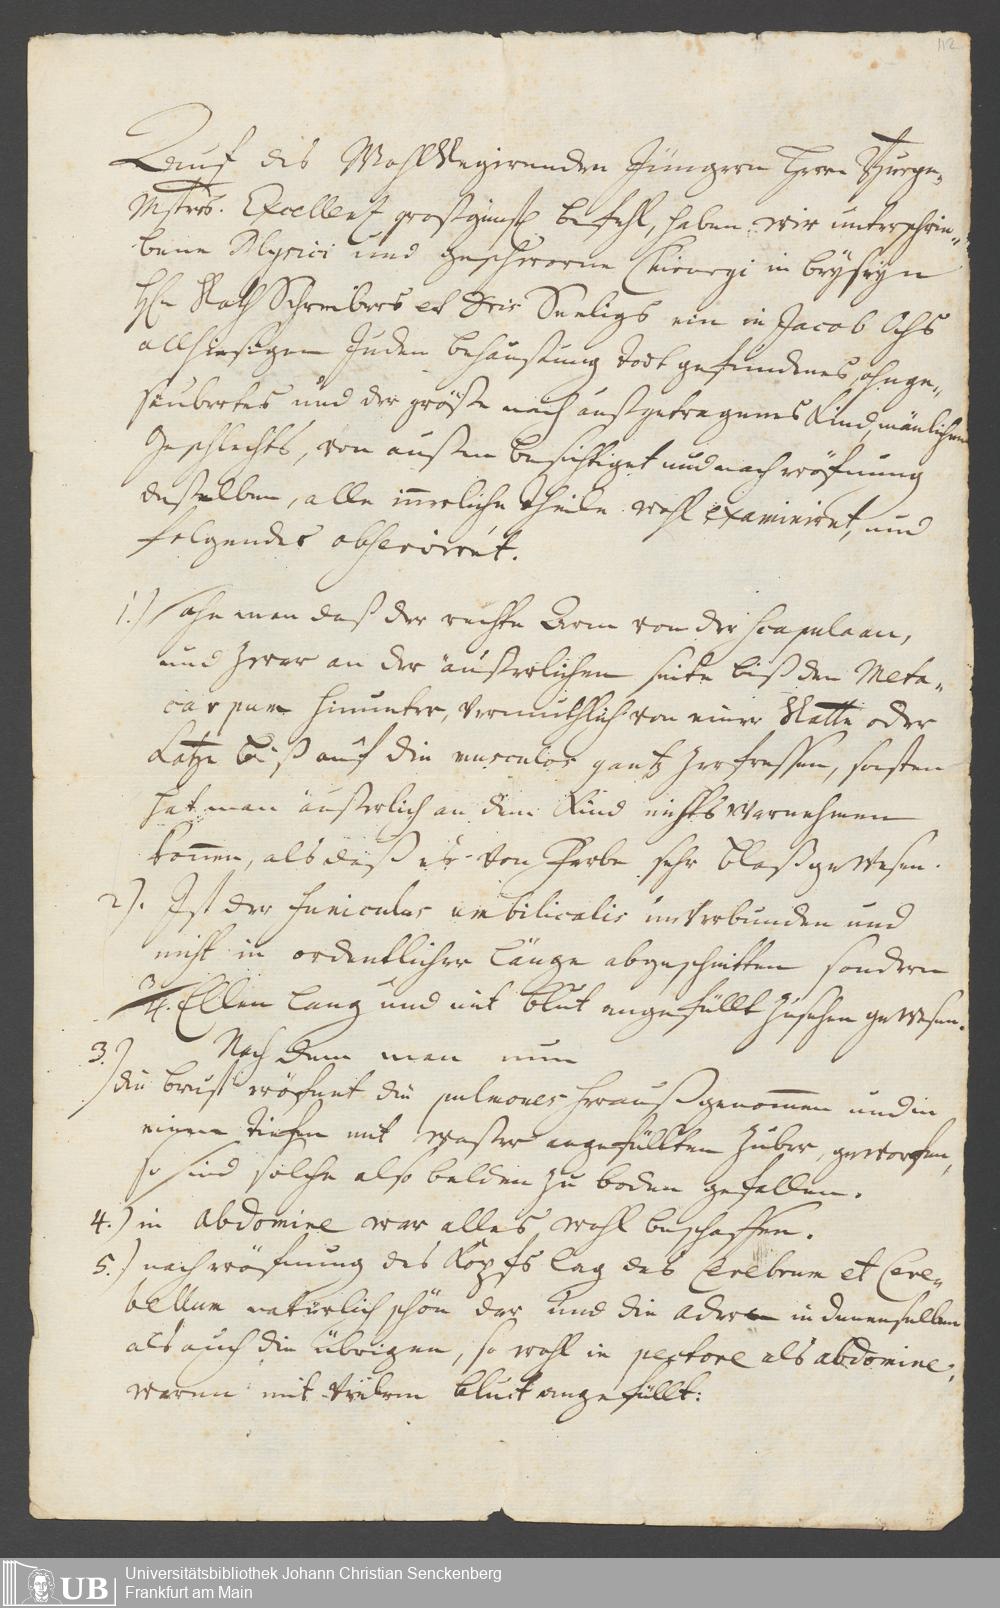 112
Auf des WohlRegirenden Jüngern Herrn Burge-
Mstrs. Excellentz großgünst. befehl, haben wir unterschrie-
bene Physici und geschworne Chirurgi in beyseyn
H. Rath Schreibers et Dris Seeligs ein in Jacob Ochs
allhiesigen Juden behaußung todt gefundenes, ohnge-
säubertes und der größe nach außgetragenes Kind, mänlichen
Geschlechts, von außen besichtiget und nach eröfnung
deßelben, alle inerliche theile wohl examiniret, und
folgendes observiret.
1.) Sahe man daß der rechte Arm von der scapula an,
und zwar an der äußerlichen seite biß den Meta-
carpum hinunter, vermuthlich von einer Ratte oder
Katze biß auf die musculos gantz zerfressen, sonsten
hat man äußerlich an dem Kind nichts warnehmen
können, als daß es von Farbe sehr blaß gewesen.
2). Ist der funiculus umbilicalis unverbunden und
nicht in ordentlicher Länge abgeschnitten sondern
3/4. Ellen lang und mit blut angefüllt zusehen gewesen.
3.) Nach dem man nun
die brust eröfnet die pulmones heraußgenommen und in
einen tiefen mit waßer angefüllten Zuber, geworfen,
so sind solche also balden zu boden gefallen.
4.) in abdomine war alles wohl beschaffen.
5.) nach eröfnung des Kopfs lag das Cerebrum et Cere-
bellum natürlich schön dar und die adern in denenselben
als auch die übrigen, so wohl in pectore als abdomine,
waren mit vielem bluth angefüllt:
UB
Universitätsbibliothek Johann Christian Senckenberg
Frankfurt am Main